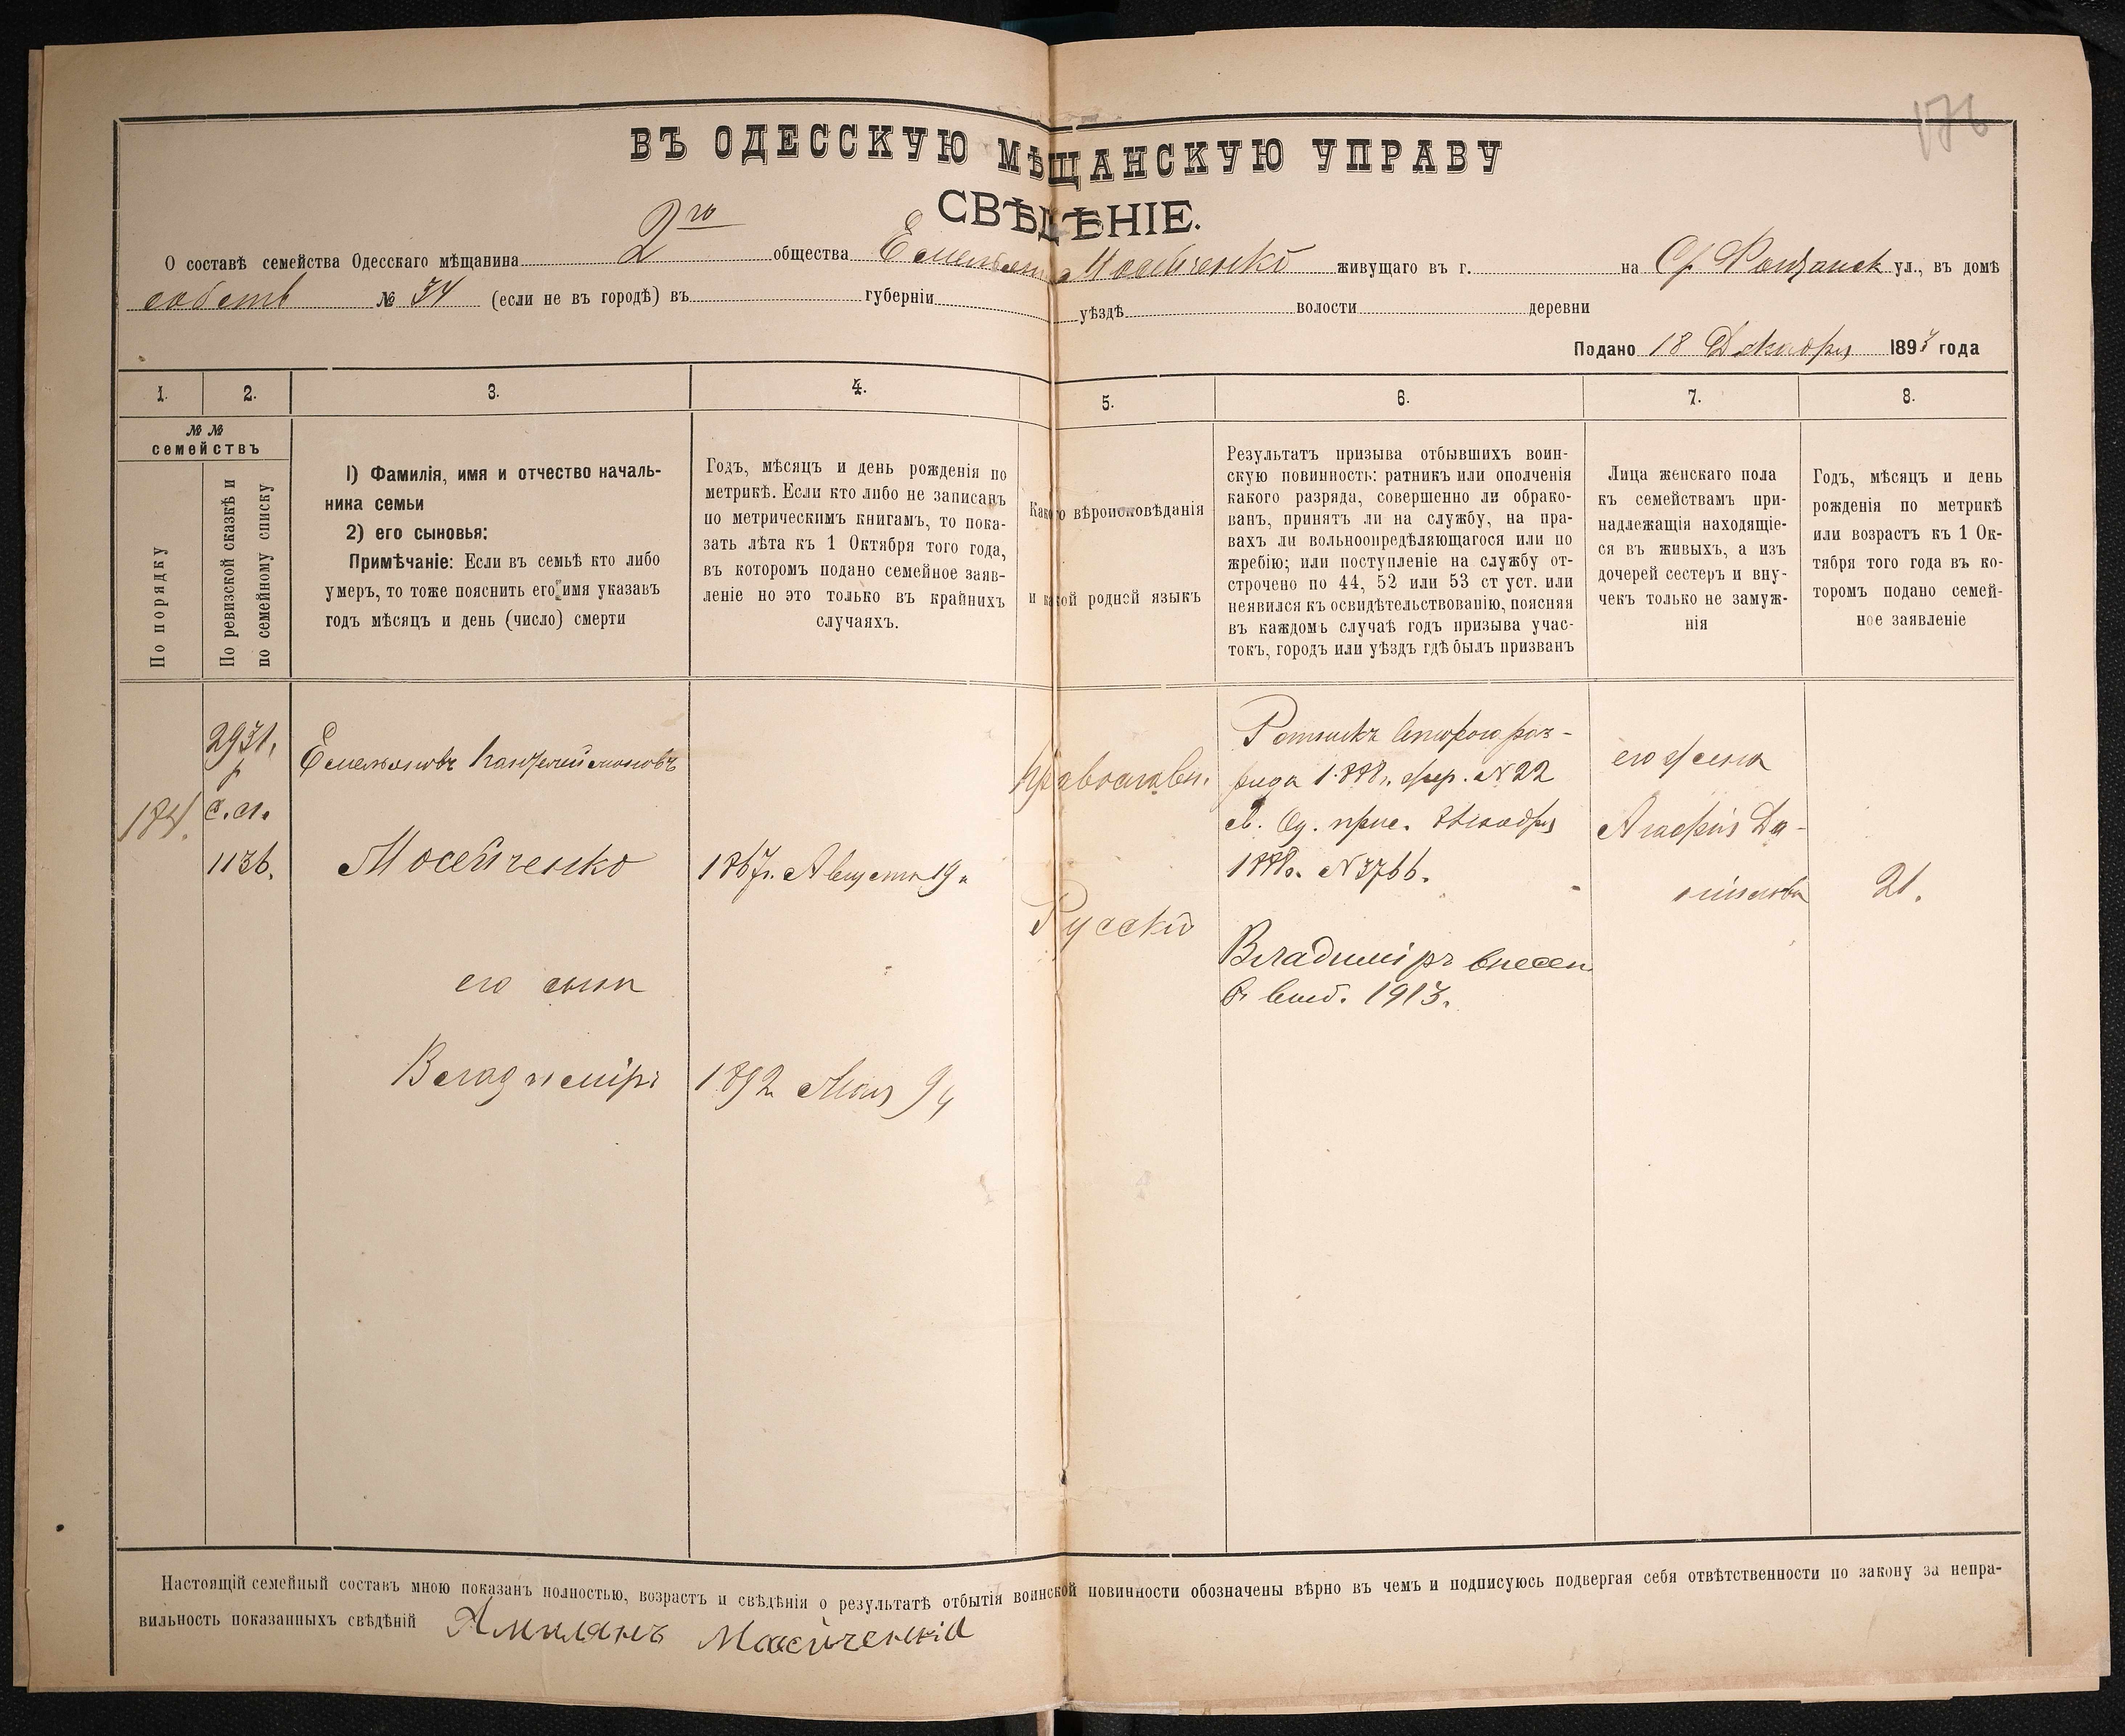 176
ВЪ ОДЕССКУЮ МѢЩАНСКУЮ УПРАВУ
СВѢДѢНІЕ.
О составѣ семейства Одесскаго мѣщанина 2го общества Емельяна Мосейченко живущаго въ г. на Ср. Фонтанск ул., въ домѣ
собств № 34 (если не въ городѣ) въ губерніи уѣздѣ волости деревни
Подано 18 Декабря 1893 года
1. 2. 3. 4. 5. 6. 7. 8.
№ №
семействъ
По порядку
По ревизской сказкѣ и
по семейному списку
1) Фамилія, имя и отчество началь-
ника семьи
2) его сыновья:
Примѣчаніе: Если въ семьѣ кто либо
умеръ, то тоже пояснить его имя указавъ
годъ мѣсяцъ и день (число) смерти
Годъ, мѣсяцъ и день рожденія по
метрикѣ. Если кто либо не записанъ
по метрическимъ книгамъ, то пока-
зать лѣта къ 1 Октября того года,
въ которомъ подано семейное заяв-
леніе но это только въ крайнихъ
случаяхъ.
Какого вѣроисковѣданія
и какой родной языкъ
Результатъ призыва отбывшихъ воин-
скую повинность: ратникъ или ополченія
какого разряда, совершенно ли обрако-
ванъ, принятъ ли на службу, на пра-
вахъ ли вольноопредѣляющагося или по
жребію; или поступленіе на службу от-
строчено по 44, 52 или 53 ст уст. или
неявился къ освидѣтельствованію, поясняя
въ каждомъ случаѣ годъ призыва учас-
токъ, городъ или уѣздъ гдѣ былъ призванъ
Лица женскаго пола
къ семействамъ при-
надлежащія находящіе-
ся въ живыхъ, а изъ
дочерей сестеръ и вну-
чекъ только не замуж-
нія
Годъ, мѣсяцъ и день
рожденія по метрикѣ
или возрастъ къ 1 Ок-
тября того года въ ко-
торомъ подано семей-
ное заявленіе
184.
2931.
р
с.п.
1136.
Емельяновъ
Мосейченко
его сынъ
Владиміръ
1867г. Августа 19
1892 Мая 9
Православн.
Русскій
Ратникъ второго раз-
ряда 1888г. жер. №22
Од. прис. Декабря
1888г. №3766.
Владиміръ внесен
в 1913.
его жена
Агафія Да-
ниилова
21.
Настоящій семейный составъ мною показанъ полностью, возрастъ и свѣдѣнія о результатѣ отбытія воинской повинности обозначены вѣрно въ чемъ и подписуюсь подвергая себя отвѣтственности по закону за непра-
вильность показанныхъ свѣдѣній Амилянъ Мосейченко